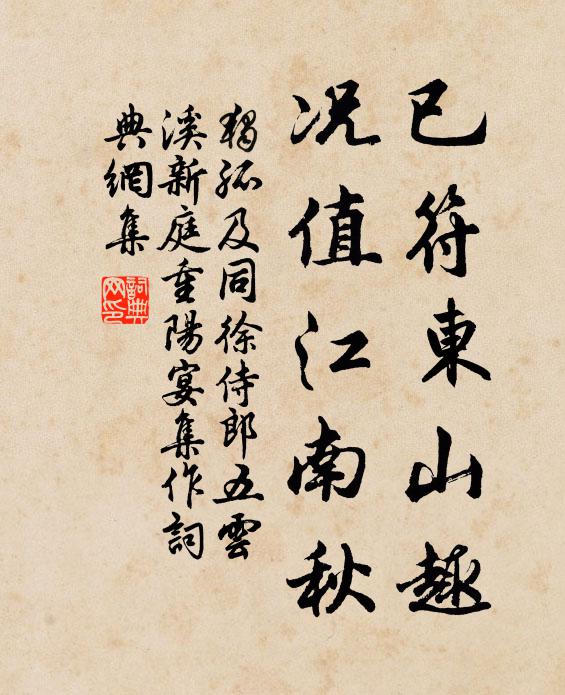 已符東山趣
況值江南秋
獨孤及同徐侍郎五雲
溪新庭重陽宴集作詞
典網集
詞典
网印